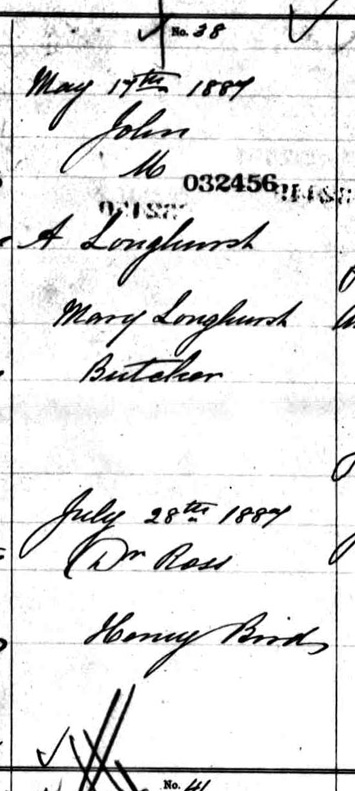 No. 38
May 17th 1887
John
M
032456
A Longhurst
Mary Longhurst
Butcher
July 28th 1887
Dr Ross
Henry Bird
No. 41